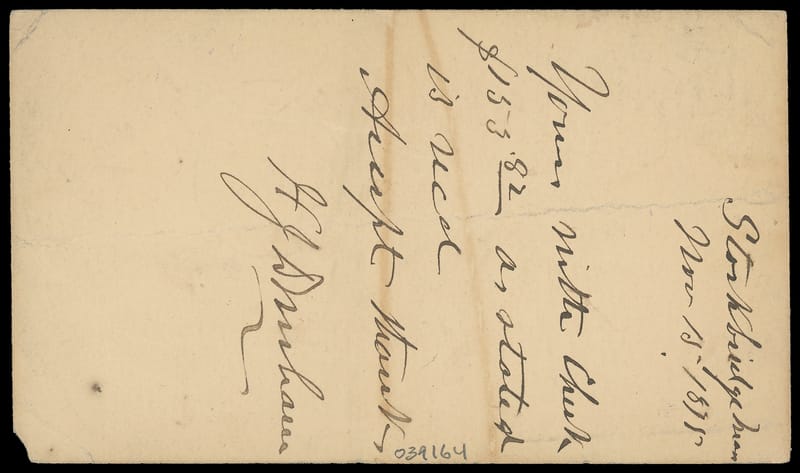 Stockbridge Mass
Nov 15 / 1875
Yours with Check
$153.82 as stated
is recd
Accept thanks
H J Dunham
039164